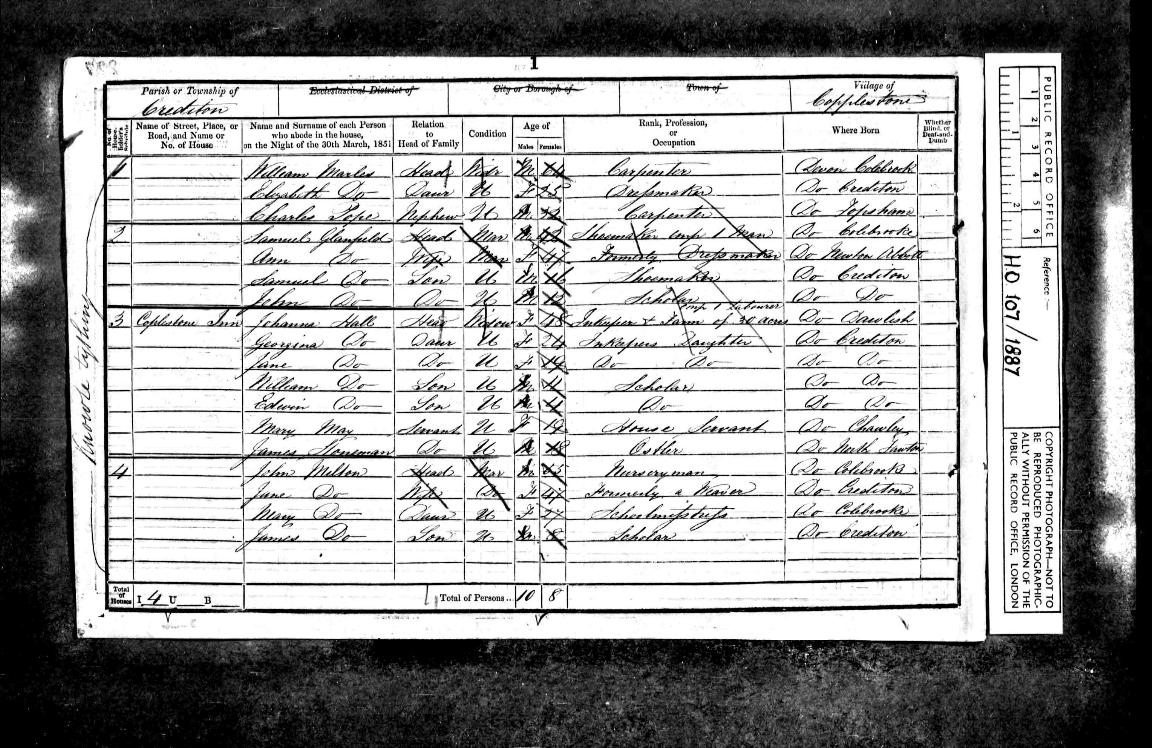 1
Parish or Township of
Ecclesiastical District of
City or Borough of
Town of
Village of
Crediton
Copplestone
No. of House-holder's Schedule
Name of Street, Place, or Road, and Name or No. of House
Name and Surname of each Person who abode in the house, on the Night of the 30th March, 1851
Relation to Head of Family
Condition
Age of
Males Females
Rank, Profession, or Occupation
Where Born
Whether Blind, or Deaf-and-Dumb
1 William Head Widr M Carpenter Devon Colebrook
Elizabeth Do Daur U F 25 Dressmaker Do Crediton
Charles Pope Nephew U M Carpenter Do Topsham
2 Samuel Glanfield Head Mar M Shoemaker emp 1 Man Do Colebrooke
Ann Do Wife Mar F 47 Formerly Dressmaker Do Newton Abbott
Samuel Do Son U M 16 Shoemaker Do Crediton
John Do Do U M Scholar Do Do
3 Coplestone Inn Johanna Hall Head Widow F 48 Inkeeper & Farm of 30 acres emp 1 Labourer Do Dawlish
Georgina Do Daur U F 24 Inkeepers Daughter Do Crediton
Jane Do Do U F 14 Do Do Do Do
William Do Son U M 11 Scholar Do Do
Edwin Do Son U M 4 Do Do Do
Mary May Servant U F House Servant Do Chawley
James Do U M 18 Ostler Do North Tawton
4 John Melton Head Mar M Nurseryman Do Colebrook
Jane Do Wife Do F 47 Formerly a Weaver Do Crediton
Mary Do Daur U F Schoolmistress Do Colebrooke
James Do Son U M 8 Scholar Do Crediton
Total of Houses I 4 U B
Total of Persons... 10 8
Knowle tything
PUBLIC RECORD OFFICE
1 2 3 4 5 6
1 2
Reference:-
H.O. 107/1887
COPYRIGHT PHOTOGRAPH-NOT TO
BE REPRODUCED PHOTOGRAPHIC-
ALLY WITHOUT PERMISSION OF THE
PUBLIC RECORD OFFICE, LONDON